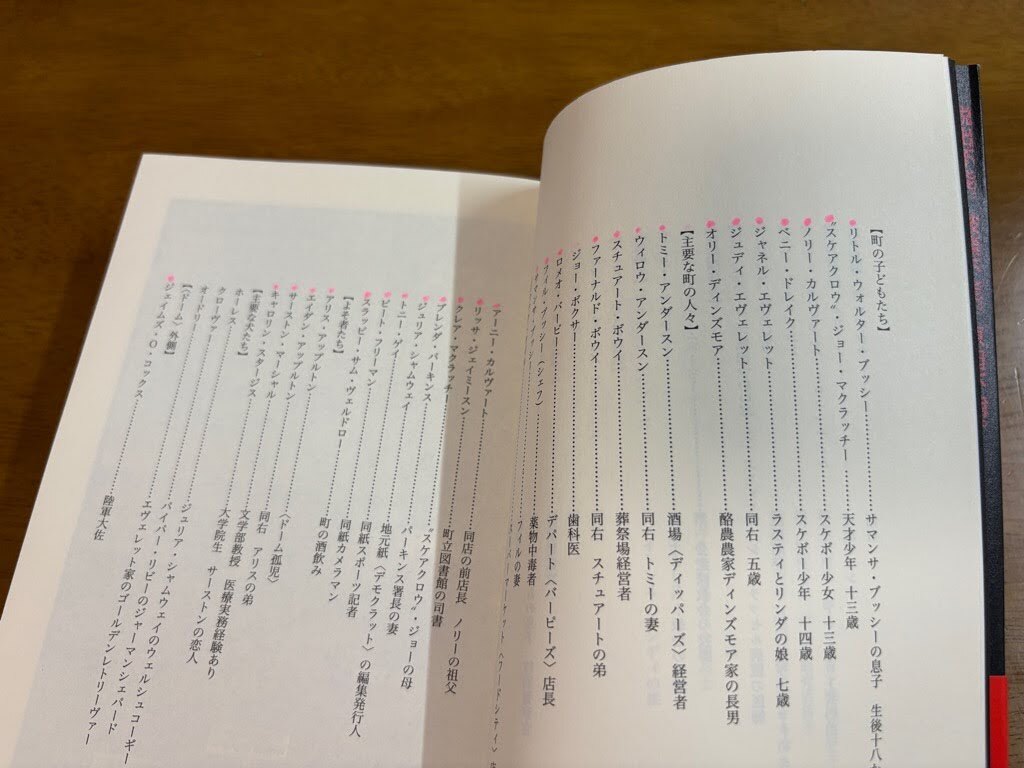 【町の子どもたち】
リトル・ウォルター・ブッシー……サマンサ・ブッシーの息子　生後十八か
"スケアクロウ"・ジョー・マクラッチー……天才少年　十三歳
ノリー・カルヴァート……スケボー少女　十三歳
ベニー・ドレイク……スケボー少年　十四歳
ジャネル・エヴェレット……ラスティとリンダの娘　七歳
ジュディ・エヴェレット……同右　五歳
オリー・ディンズモア……酪農農家ディンズモア家の長男
【主要な町の人々】
トミー・アンダースン……酒場〈ディッパーズ〉経営者
ウィロウ・アンダースン……同右　トミーの妻
スチュアート・ボウイ……葬祭場経営者
ファーナルド・ボウイ……同右　スチュアートの弟
ジョー・ボクサー……歯科医
ロメオ・バーピー……デパート〈バーピーズ〉店長
フィル・ブッシー（シェフ）……薬物中毒者
フィルの妻
アーニー・カルヴァート……同店の前店長　ノリーの祖父
リッサ・ジェイミースン……町立図書館の司書
クレア・マクラッチー……"スケアクロウ"・ジョーの母
ブレンダ・パーキンス……パーキンス署長の妻
ジュリア・シャムウェイ……地元紙〈デモクラット〉の編集発行人
トニー・ゲイ……同紙スポーツ記者
ピート・フリーマン……同紙カメラマン
スラッピー・サム・ヴェルドロー……町の酒飲み
【よそ者たち】
アリス・アップルトン……〈ドーム孤児〉
エイダン・アップルトン……同右　アリスの弟
サーストン・マーシャル……文学部教授　医療実務経験あり
キャロリン・スタージス……大学院生　サーストンの恋人
【主要な犬たち】
ホーレス……ジュリア・シャムウェイのウェルシュコーギー
クローヴァー……パイパー・リビーのジャーマンシェパード
オードリー……エヴェレット家のゴールデンレトリーヴァー
【〈ドーム〉外側】
ジェイムズ・O・コックス……陸軍大佐